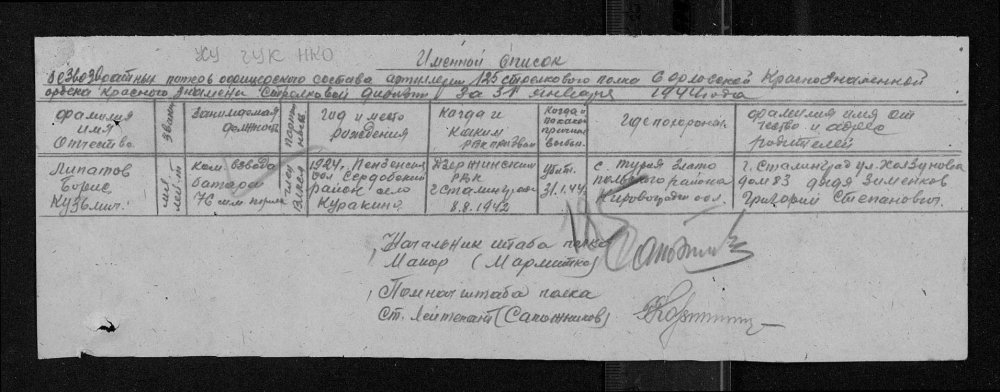 ЖУ ГУК НКО
Именной список
безвозвратных потерь офицерского состава артиллерии 125 стрелкового полка 6 Орловской Краснознаменной
ордена Красного Знамени Стрелковой дивизии За 31 января 1944 года
фамилия имя Отчество
Звание
Занимаемая должность
парт-ность
Год и место рождения
когда и каким РВК призван
Когда и по какой причине выбыл
Где похоронен
фамилия имя отчество и адрес родителей
Липатов Борис Кузьмич.
мл. лейт.
ком. взвода батареи 76 мм пушек
член ВЛКСМ
1924г. Пензенская обл Сердобский район село Куракино
Дзержинским РВК г Сталинграда 8.8.1942
Убит. 31.1.44
с. Турия Злато польского района Кировоградск обл.
г. Сталинград ул. Хользунова дом 83 дядя Зименков Григорий Степанович.
Начальник штаба полка
Майор (Мармитко)
Помнач штаба полка
Ст. лейтенант (Сапожников)